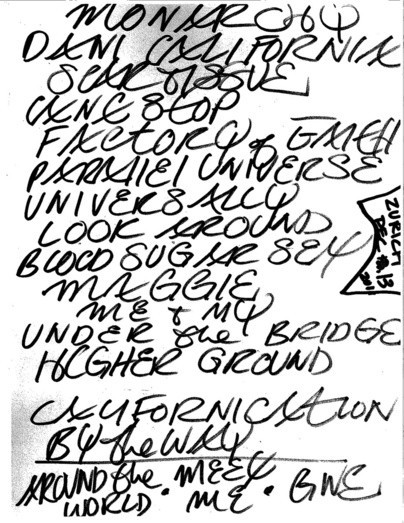 MONARCHY
DANI CALIFORNIA
SCAR TISSUE
CANT STOP
FACTORY of FAITH
PARALLEL UNIVERSE
UNIVERSALLY
LOOK AROUND
BLOOD SUGAR SEX
MAGGIE
ME & MY
UNDER the BRIDGE
HIGHER GROUND
CALIFORNICATION
BY the WAY
AROUND the
WORLD • MEET ME • GIVE
ZURICH
DEC
13
2011